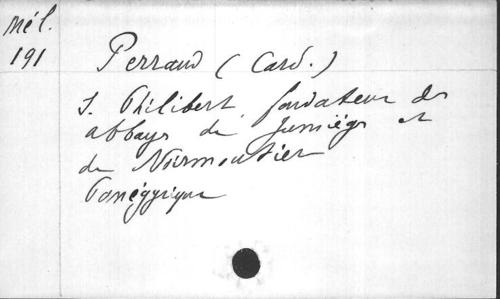 Mél.
191
Perraud (Card.)
S. Philibert, fondateur des
abbayes de Jumièges et
de Noirmoutier
Panégyrique